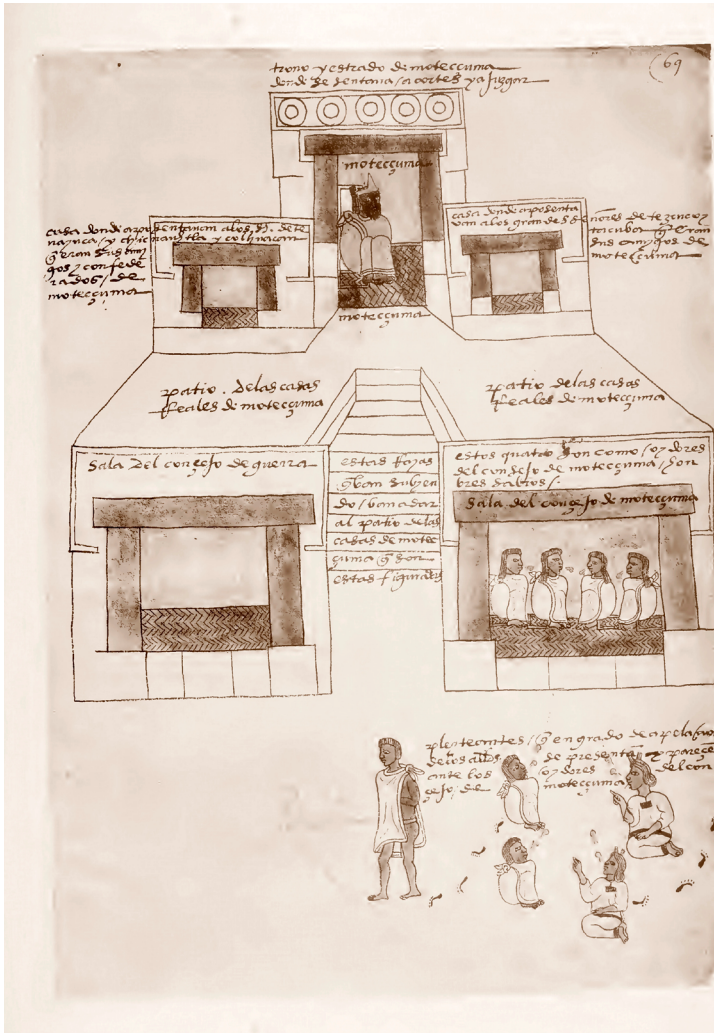 69
trono y estrado de moteccuma
donde se sentava / a cortes y a juzgar
moteccuma
casa donde aposentavan a los s.es de te
nayuca / y chicnauhtla y colhuacan
q̃ eran sus ami
gos / y confede
rados / de
moteccuma
casa donde aposenta
van a los grandes se ñores de tezcuco y
tacuba q̃ eran
sus amygos de
moteccuma
moteccuma
patio . de las casas
Reales de moteccuma
patio de las casas
Reales de moteccuma
Sala del consejo de guerra
estas Rayas
q̃ van subyen
do / van a dar
al patio de las
casas de motec
cuma q̃ son
estas figuradas
estos quatro son como / oydores
del consejo de moteccuma / hon
bres sabios /.
Sala del consejo de moteccuma
pleyteantes / q̃ en grado de apelaçion
de los alldes. se presentã y pareçẽ
ante los oydores del con
sejo / de moteccuma